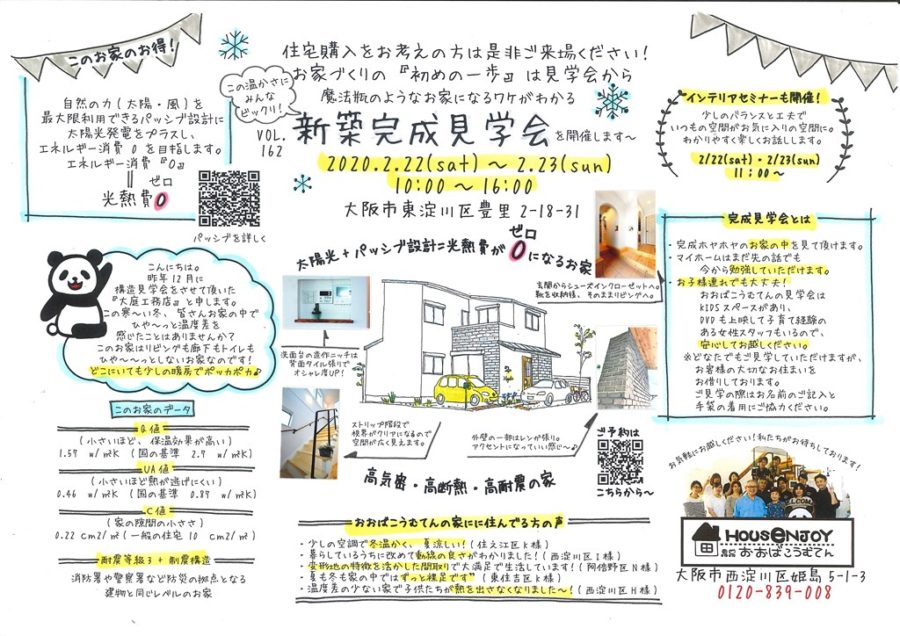 このお家のお得!
自然の力(太陽・風)を
最大限利用できるパッシブ設計に
太陽光発電をプラスし、
エネルギー消費 0 を目指します。
エネルギー消費『0』
||
ゼロ
光熱費0
パッシブを詳しく
この温かさに
みんな
ビックリ!
VOL.
162
住宅購入をお考えの方は是非ご来場ください!
お家づくりの『初めの一歩』は見学会から
魔法瓶のようなお家になるワケがわかる
新築完成見学会を開催します~
2020.2.22(sat)~2.23(sun)
10:00~16:00
大阪市東淀川区豊里2-18-31
ゼロ
太陽光+パッシブ設計=光熱費が0になるお家
インテリアセミナーも開催!
少しのバランスと工夫で
いつもの空間がお気に入りの空間に。
わかりやすく楽しくお話しします。
2/22(sat)・2/23(sun)
11:00~
こんにちは。
昨年12月に
構造見学会をさせて頂いた
『大庭工務店』と申します。
この寒~い冬、皆さんお家の中で
ひや~っと温度差を
感じたことはありませんか?
このお家はリビングも廊下もトイレも
ひや~~っとしないお家なのです!
どこにいても少しの暖房でポッカポカ♪
玄関からシューズインクローゼットへ。
靴を収納後、そのままリビングへ。
洗面台の造作ニッチは
背面タイル張りで
オシャレ度UP!
ストリップ階段で
視界がクリアになるので
空間が広く見えます。
外壁の一部はレンガ張り。
アクセントになっていい感じ~♪
高気密・高断熱・高耐震の家
ご予約は
こちらから~
完成見学会とは
・完成ホヤホヤのお家の中を見て頂けます。
・マイホームはまだ先の話でも
今から勉強していただけます。
・お子様連れでも大丈夫!
おおばこうむてんの見学会は
KIDSスペースがあり、
DVDも上映して子育て経験の
ある女性スタッフもいるので、
安心してお越しください。
※どなたでもご見学していただけますが、
お客様の大切なお住まいを
お借りしております。
ご見学の際はお名前のご記入と
手袋の着用にご協力ください。
このお家のデータ
Q値
(小さいほど、保温効果が高い)
1.57 w/㎡K (国の基準 2.7 w/㎡K)
UA値
(小さいほど熱が逃げにくい)
0.46 w/㎡K (国の基準 0.87 w/㎡K)
C値
(家の隙間の小ささ)
0.22 cm2/㎡(一般の住宅 10 cm2/㎡)
耐震等級3+制震構造
消防署や警察署など防災の拠点となる
建物と同じレベルのお家
おおばこうむてんの家にに住んでる方の声
・少しの空調で冬温かく、夏涼しい!(住之江区K様)
・暮らしているうちに改めて動線の良さがわかりました!(西淀川区I様)
・変形地の特徴を活かした間取りで大満足で生活しています!(阿倍野区N様)
・夏も冬も家の中ではずっと裸足です"(東住吉区K様)
・温度差の少ない家で子供たちが熱を出さなくなりました~!(西淀川区H様)
お気軽にお越しください!私たちがお待ちしております!
HOUSENJOY
おおばこうむてん
大阪市西淀川区姫島5-1-3
0120-839-008